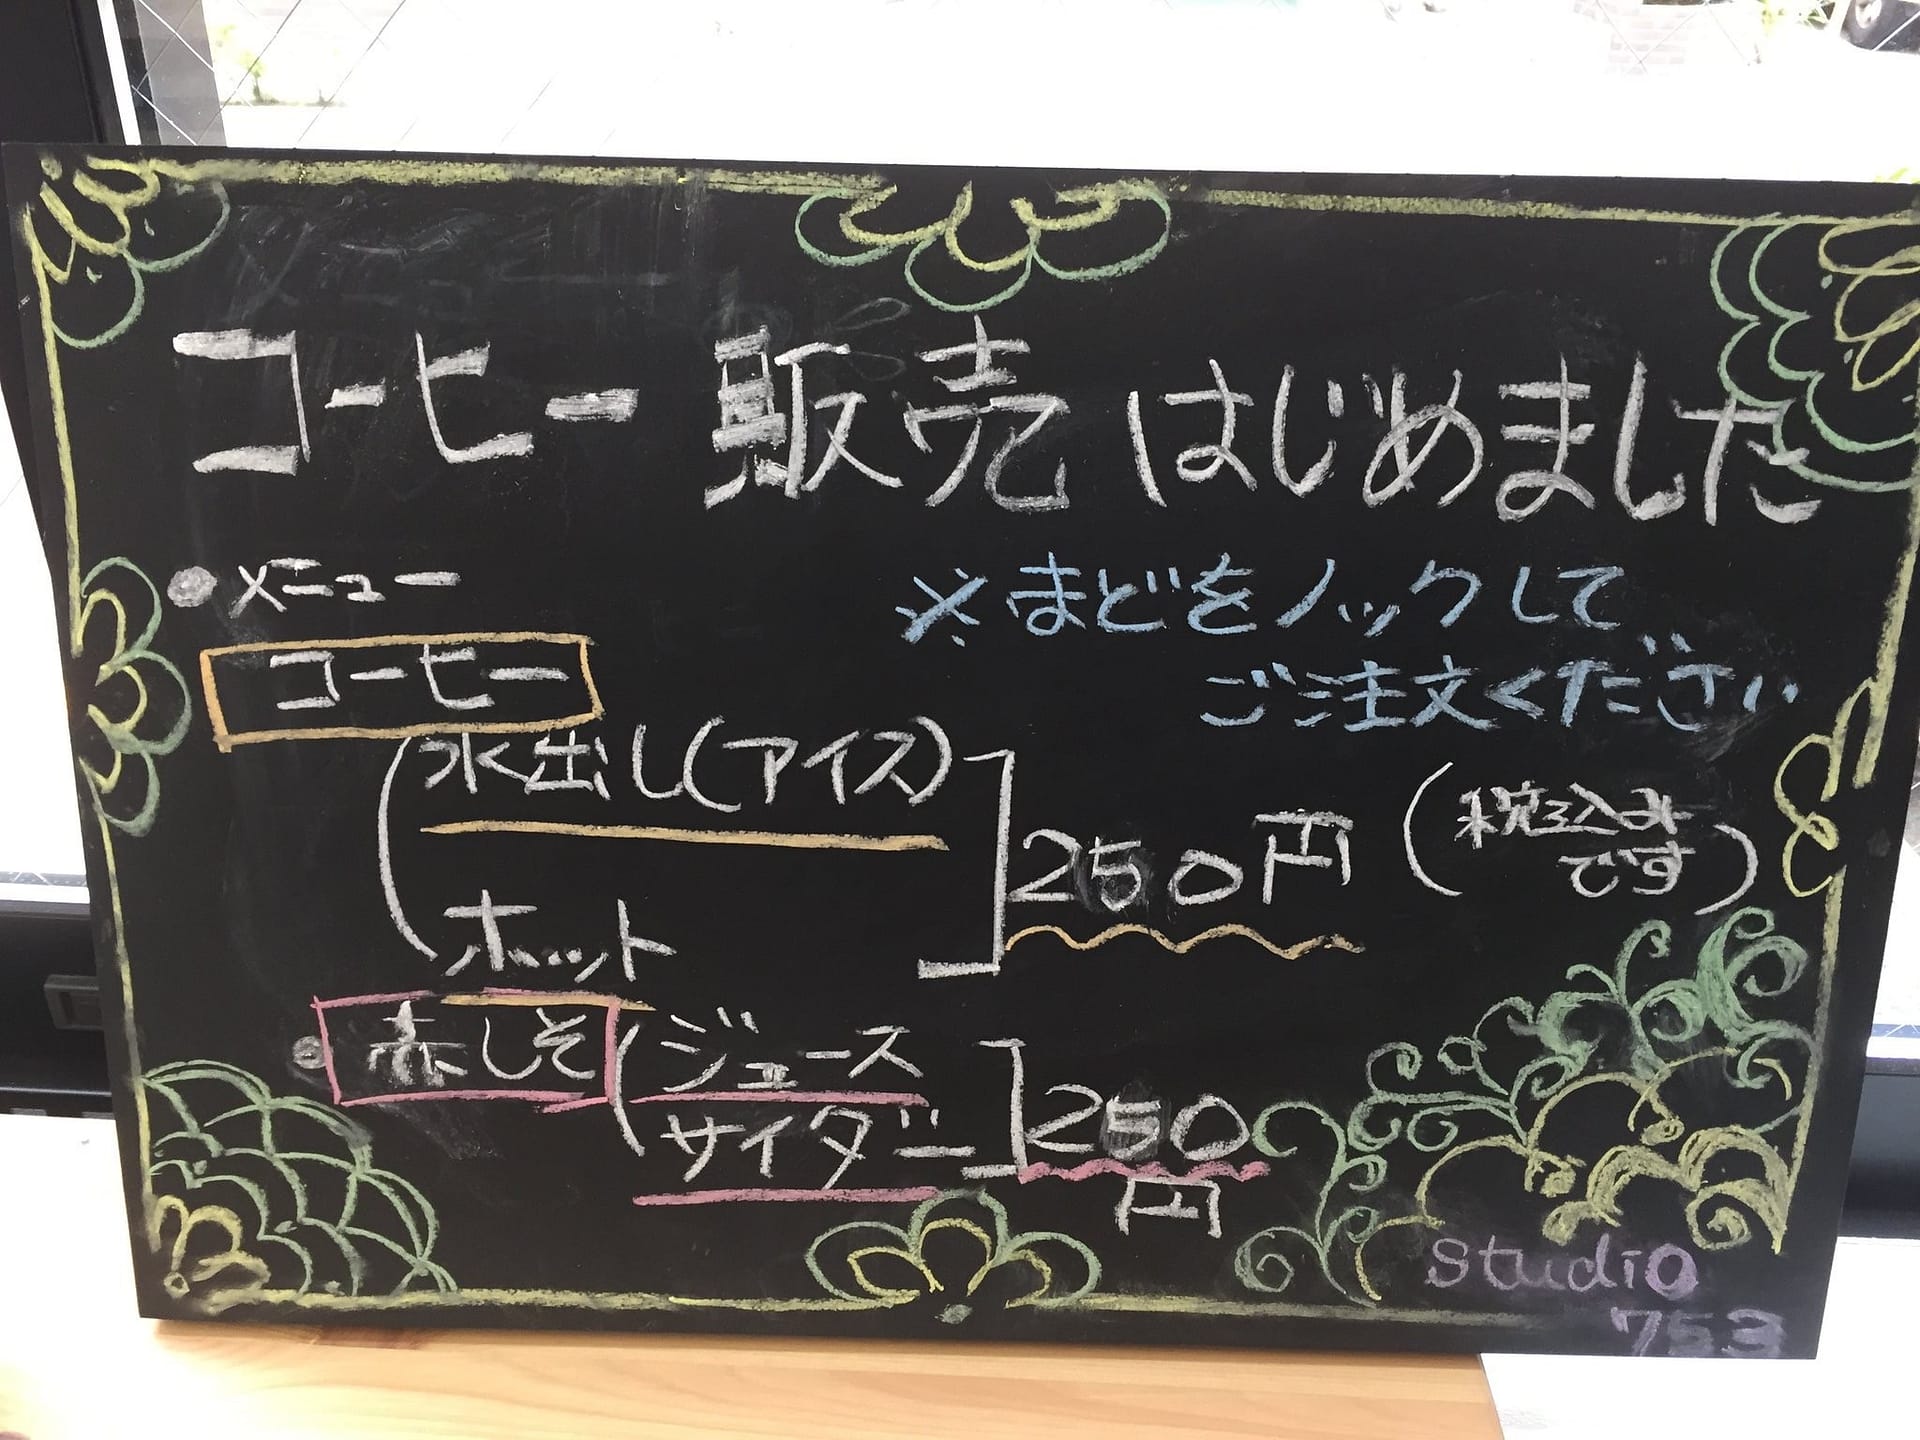 コーヒー 販売 はじめました
● メニュー
※まどをノックして
ご注文ください
コーヒー
水出し(アイス)
ホット
250円
(税込み
です)
◎ 赤しそ
ジュース
サイダー
250
円
studio
753